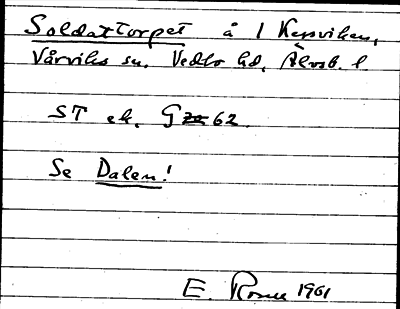 Soldattorpet å 1 Kesviken,
Vårviks sn. Vedbo hd. Älvsb. l.
ST ek. G 62
Se Dalen!
E. Rosm 1961